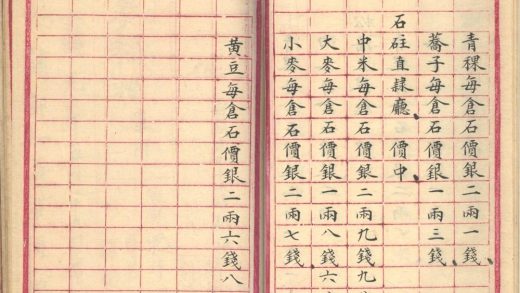 青稞每倉石價銀二兩一錢、
蕎子每倉石價銀一兩三錢、
石砫直隸廳、價中、
中米每倉石價銀二兩九錢九
大麥每倉石價銀一兩八錢六
小麥每倉石價銀二兩七錢、
黃豆每倉石價銀二兩六錢八